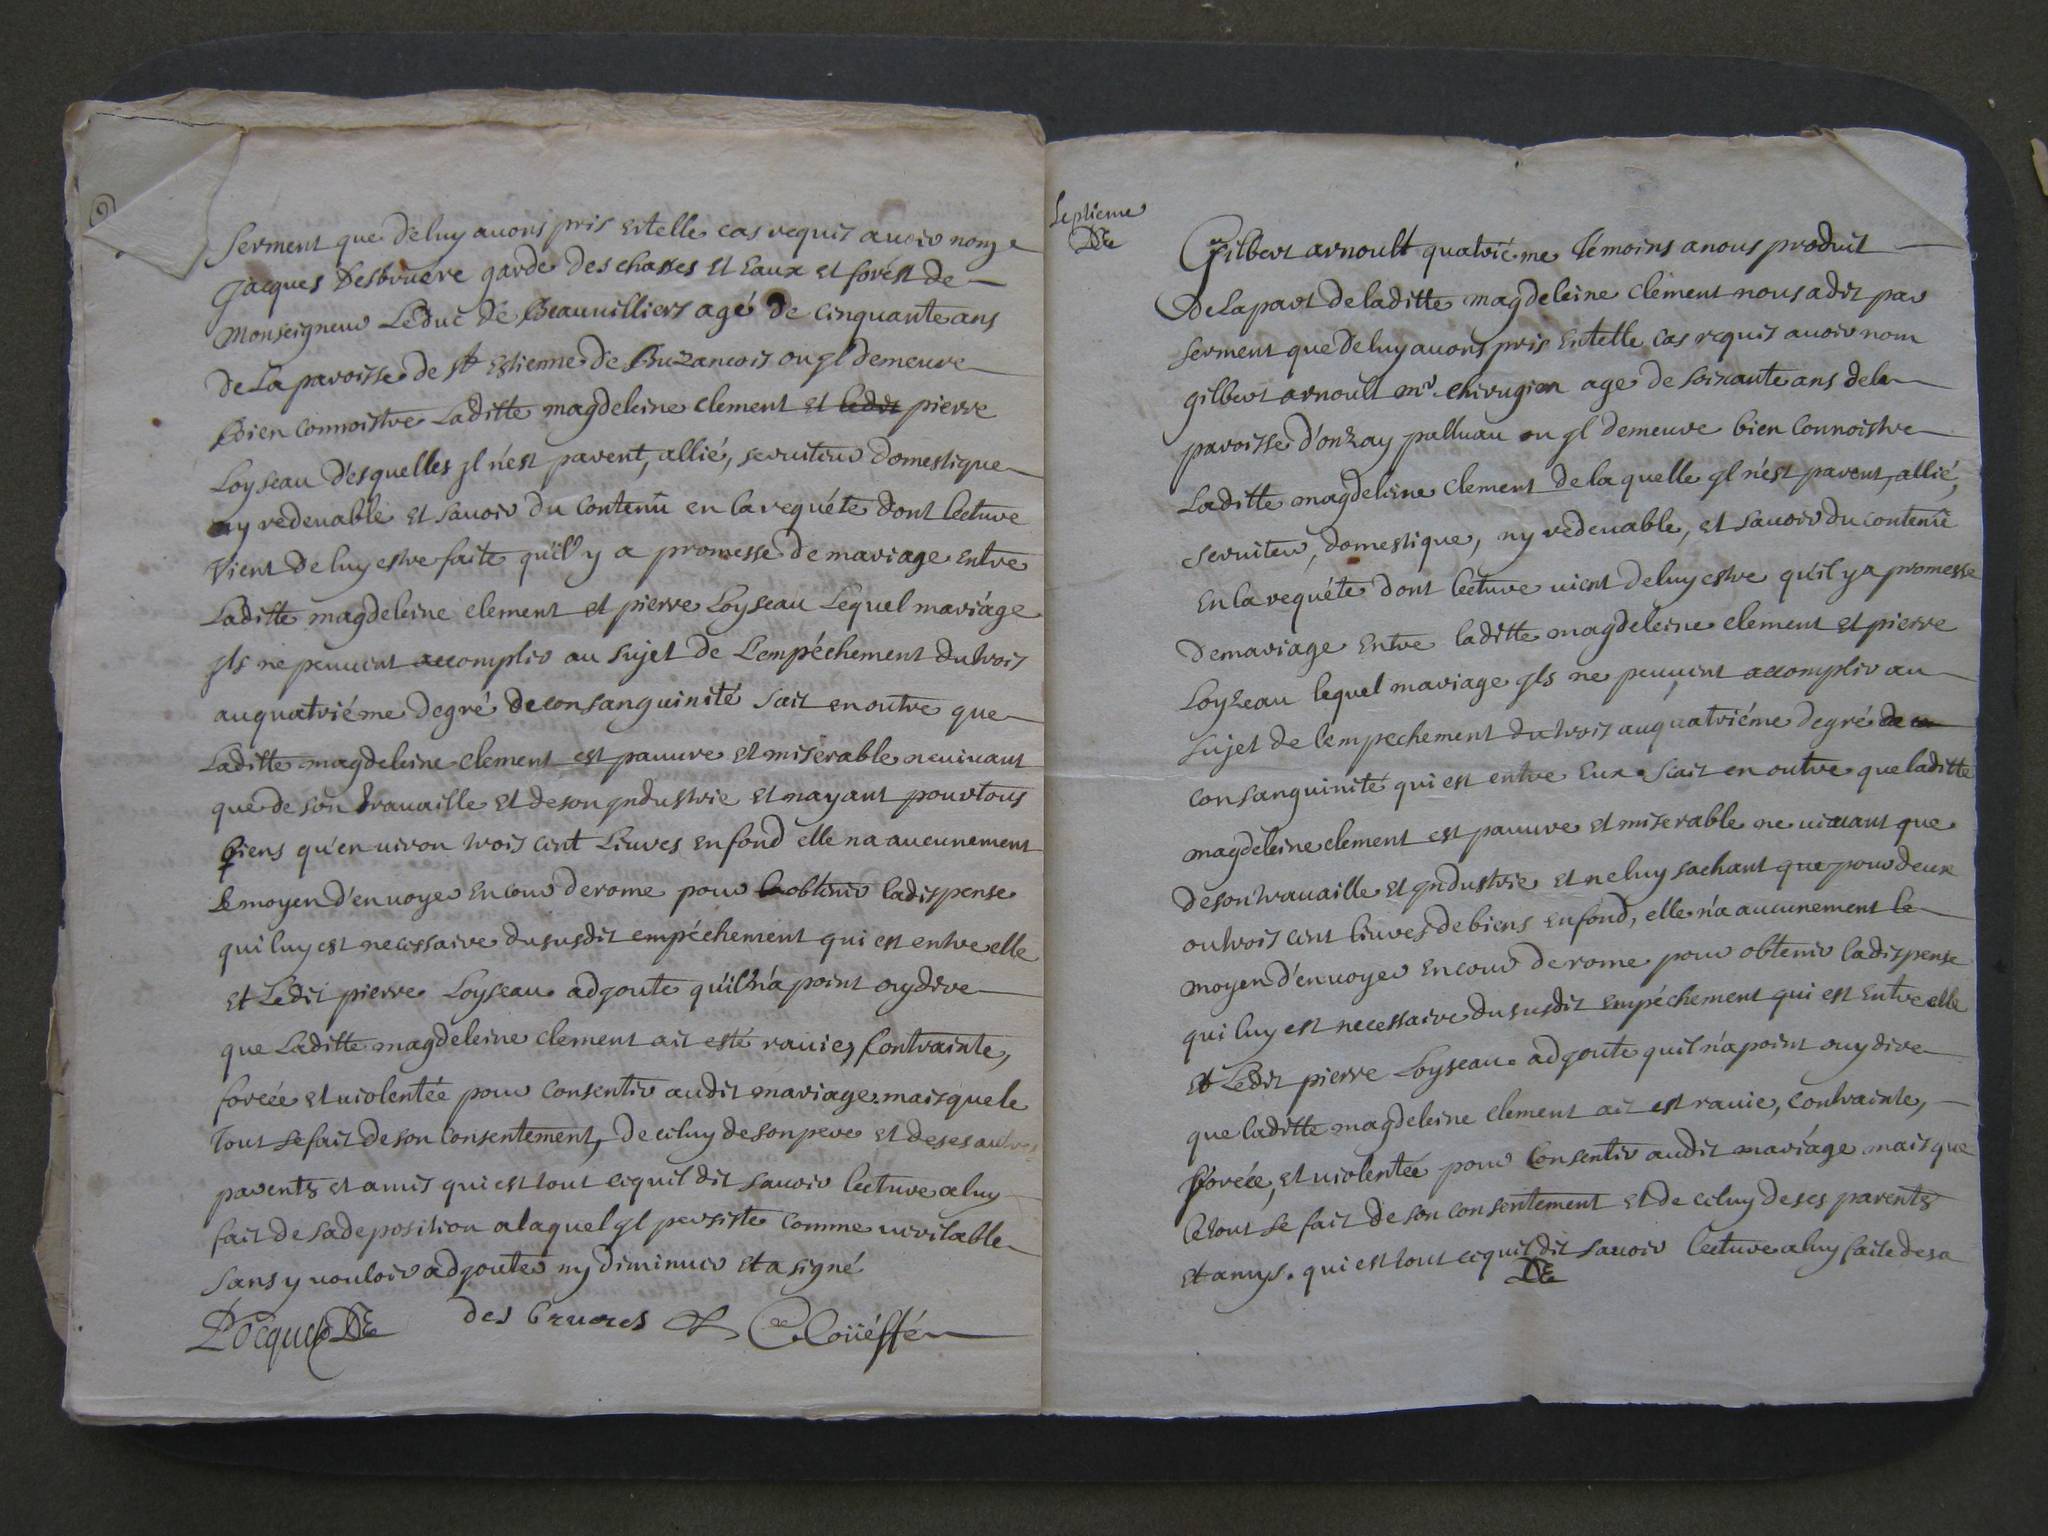 serment que de luy avons pris en telle cas requis avoir nom
Jacques Desbruere garde des chasses et Eaux et forest de
monseigneur Le duc de Beauvilliers agé de cinquante ans
de La paroisse de st Estienne de Buzancois ou jl demeure
Bien connoistre Laditte magdeleine clement et ledit pierre
Loyseau desquelles jl n'est parent, allié, serviteur domestique
ny redevable et savoir du contenü en la requéte dont lecture
vient de luy estre faite qu'il y a promesse de mariage entre
Laditte magdeleine clement et pierre Loyseau Lequel mariage
jls ne peuvent accomplir au sujet de L'empéchement du trois
au quatriéme degré de consanguinité sait en outre que
Laditte magdeleine clement est pauvre et miserable ne vivant
que de son travaille et de son jndustrie et n'ayant pour tous
biens qu'environ trois cent Livres en fond elle na aucunement
le moyen d'envoyer en cour de rome pour obtenir la dispense
qui luy est necessaire du susdit empéchement qui est entre elle
et Ledit pierre Loyseau adjoute qu'il n'a point ouy dire
que Laditte magdeleine clement ait esté ravie, contrainte,
forcée et violentée pour consentir audit mariage. mais que le
tout se fait de son consentement, de celuy de son pere et de ses autres
parents et amis qui est tout ce quil dit savoir lecture a luy
fait de sa deposition a laquel jl persiste comme veritable
sans y vouloir adjouter ny diminuer et a signé
Pocquet DE des brueres C. Coüéffé
septieme
DE
Gilbert arnoult quatriéme temoins a nous produit
De la part de laditte magdeleine clement nous a dit par
serment que de luy avons pris en telle cas requis avoir nom
gilbert arnoult mr chirugien age de soixante ans de la
paroisse d'onzay palluau ou jl demeure bien connoistre
Laditte magdeleine clement de la quelle jl n'est parent, allié,
serviteur, domestique, ny redevable, et savoir du contenü
en la requéte dont lecture vient de luy estre qu'il y a promesse
de mariage entre laditte magdeleine clement et pierre
Loyzeau lequel mariage jls ne peuvent accomplir au
sujet de lempechement du trois au quatriéme degré de co
consanguinité qui est entre Eux. scait en outre que laditte
magdeleine clement est pauvre et miserable ne vivant que
de son travaille et jndustrie et ne luy sachant que pour deux
ou trois cent livres de biens en fond, elle n'a aucunement le
moyen d'envoyer en cour de rome pour obtenir la dispense
qui luy est necessaire du susdit empéchement qui est entre elle
et Ledit pierre Loyseau. adjoute quil n'a point ouy dire
que laditte magdeleine clement ait est ravie, contrainte,
forcée, et violentée pour consentir audit mariage mais que
le tout se fait de son consentement et de celuy de ses parents
et amys. qui est tout ce quil dit savoir lecture a luy faite de sa
DE